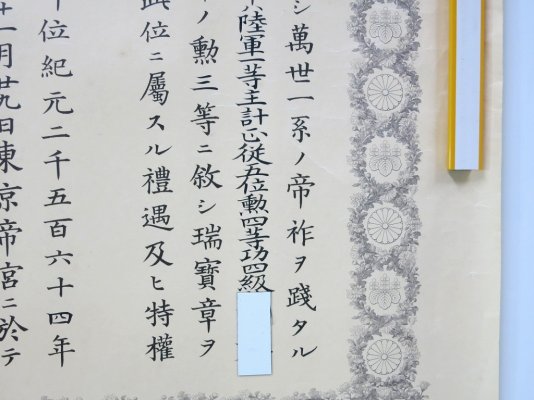 シ萬世一系ノ帝祚ヲ踐タル
陸軍一等主計正從五位勲四等功四級
ノ勲三等ニ敘シ瑞寶章ヲ
此位ニ屬スル禮遇及ヒ特權
位紀元二千五百六十四年
十一月廿九日東京帝宮ニ於テ